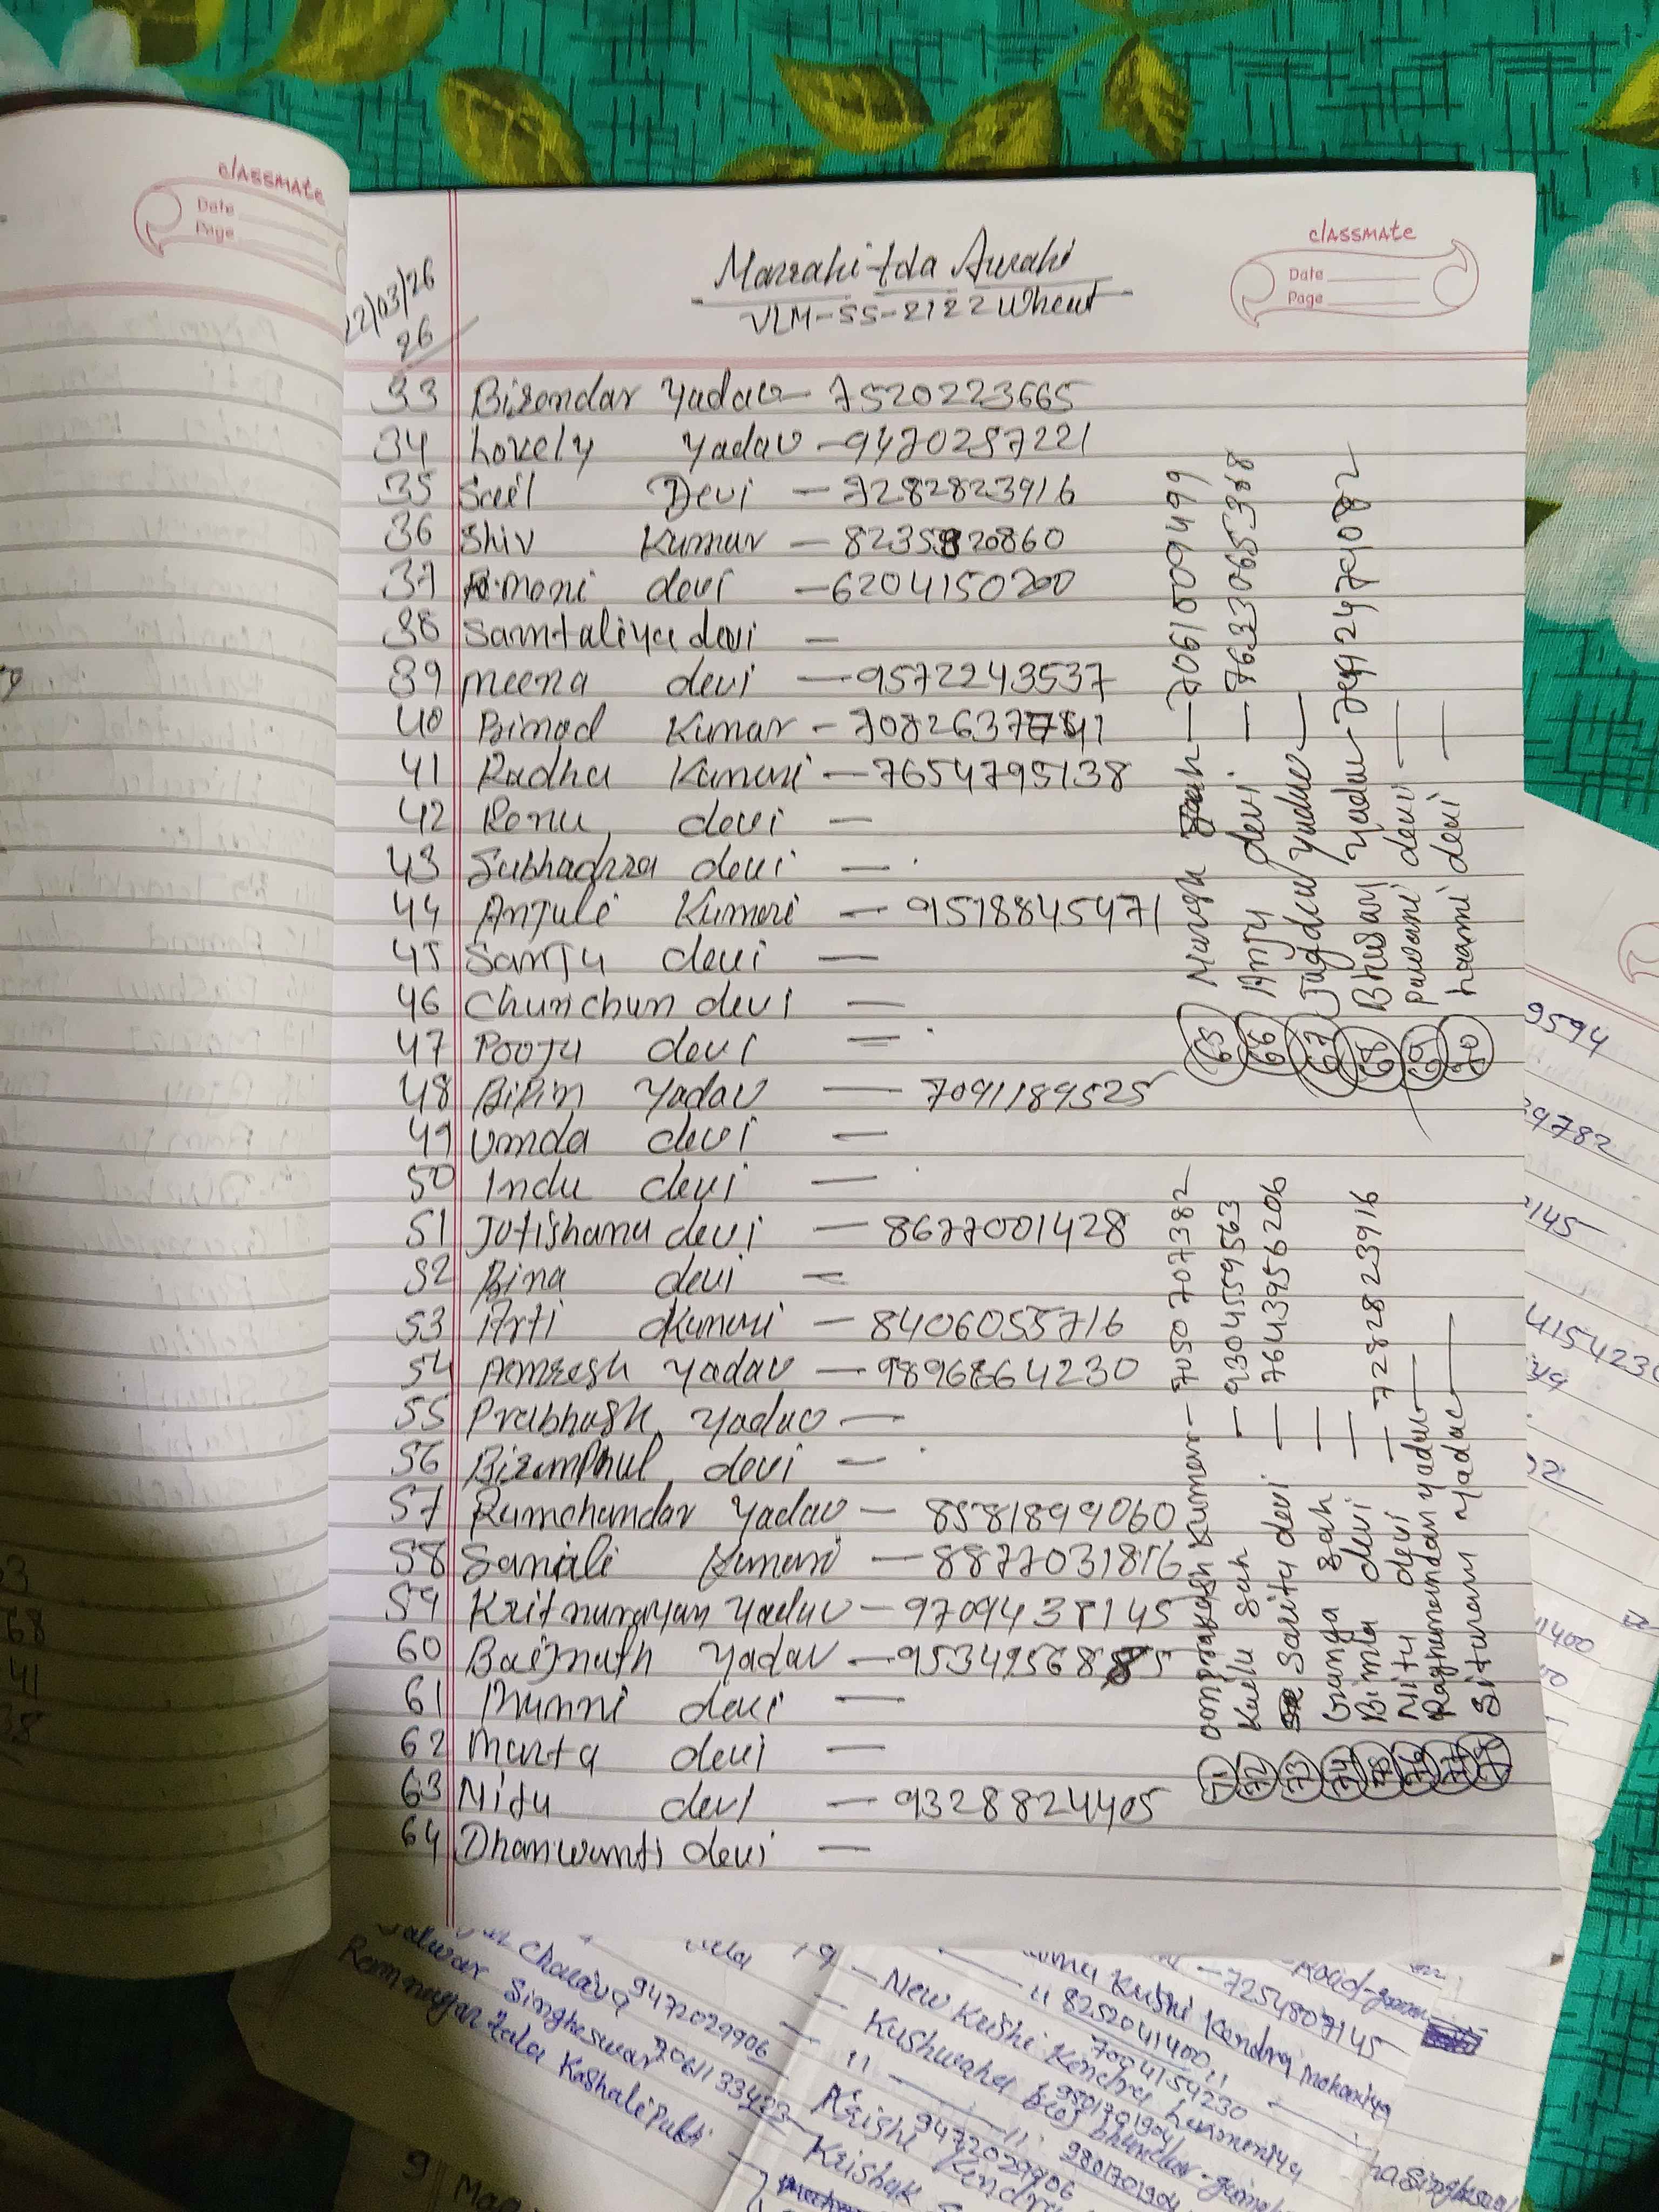 classmate
Date
Page
classmate
Date
Page
22/03/26
26
Marrahi tola Aurahi
VLM-SS-2122 Wheat
33 Birendar Yadav - 7520223665
34 Lovely Yadav - 9470257221
35 Devi - 7282823916
36 Shiv Kumar - 8235820860
37 devi - 6204150200
38 Samtaliya devi -
39 meena devi - 9572243537
40 Binod Kumar -
41 Radha Kumari - 7654795138
42 Renu devi -
43 Subhadra devi -
44 Anjuli Kumari - 9518845471
45 Sanju devi -
46 Chunchun devi -
47 Pooja devi -
48 Bipin Yadav - 7091189525
49 Umda devi -
50 Indu devi -
51 Jotishana devi - 8677001428
52 Bina devi -
53 Arti Kumari - 8406055716
54 Amresh Yadav -
55 Prabhash Yadav -
56 Biramphul devi -
57 Ramchandar Yadav - 8581899060
58 Saniali Kumari - 8877031816
59 Kritnarayan Yadav - 9709438145
60 Baijnath Yadav -
61 Munni devi -
62 Marta devi -
63 Nitu devi - 9328824405
64 Dhanwanti devi -
65 Sah - 7061509499
66 Anju devi - 7633065388
67 Jagdev Yadav -
68 Bhusan Yadav -
69 Pawani devi -
70 devi -
71 omprakash Kumar - 7050707382
72 Sah - 9304559563
73 Savita devi - 7643956206
74 Ganga Sah -
75 Bimla devi -
76 Nitu devi - 7282823916
77 Raghunandan Yadav -
78 Sitaram Yadav -
9594
29782
2145
4154230
11400
68
41
9472029906
Singheswar
7061133423
Ramnagar tola Kashalipatti
9 - New Krishi Kendra
Kushwaha
Krishi Kendra
Krishak
8252041400
7004154230
9801701904
7254807145
9472029906
9801701904